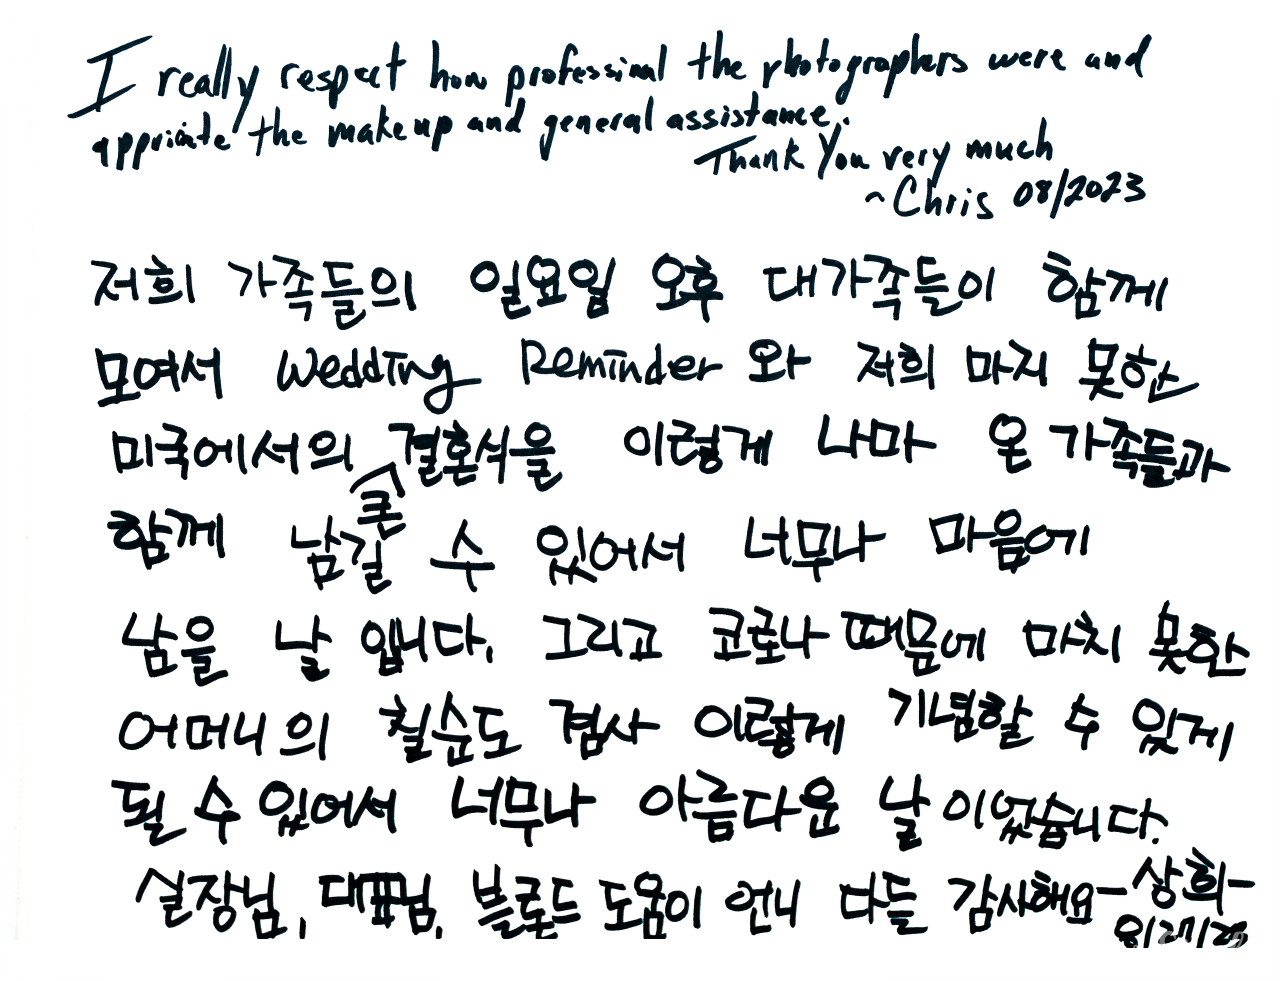 I really respect how professional the photographers were and
appriciate the makeup and general assistance.
Thank You very much
~Chris 08/2023
저희 가족들의 일요일 오후 대가족들이 함께
모여서 Wedding Reminder 와 저희 마지 못한
미국에서의 결혼식을 이렇게 나마 온 가족들과
함께 남길 수 있어서 너무나 마음에
큰
남을 날 입니다. 그리고 코로나 때문에 마치 못한
어머니의 칠순도 겸사 이렇게 기념할 수 있게
될 수 있어서 너무나 아름다운 날 이었습니다.
실장님, 대표님, 블로드 도움이 언니 다들 감사해요 -상희-
8/27/23